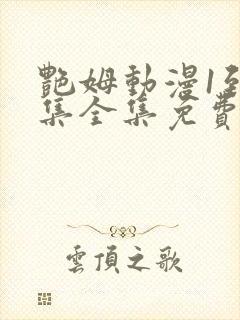 艷姆動漫1至
集全集免費
雲頂之歌